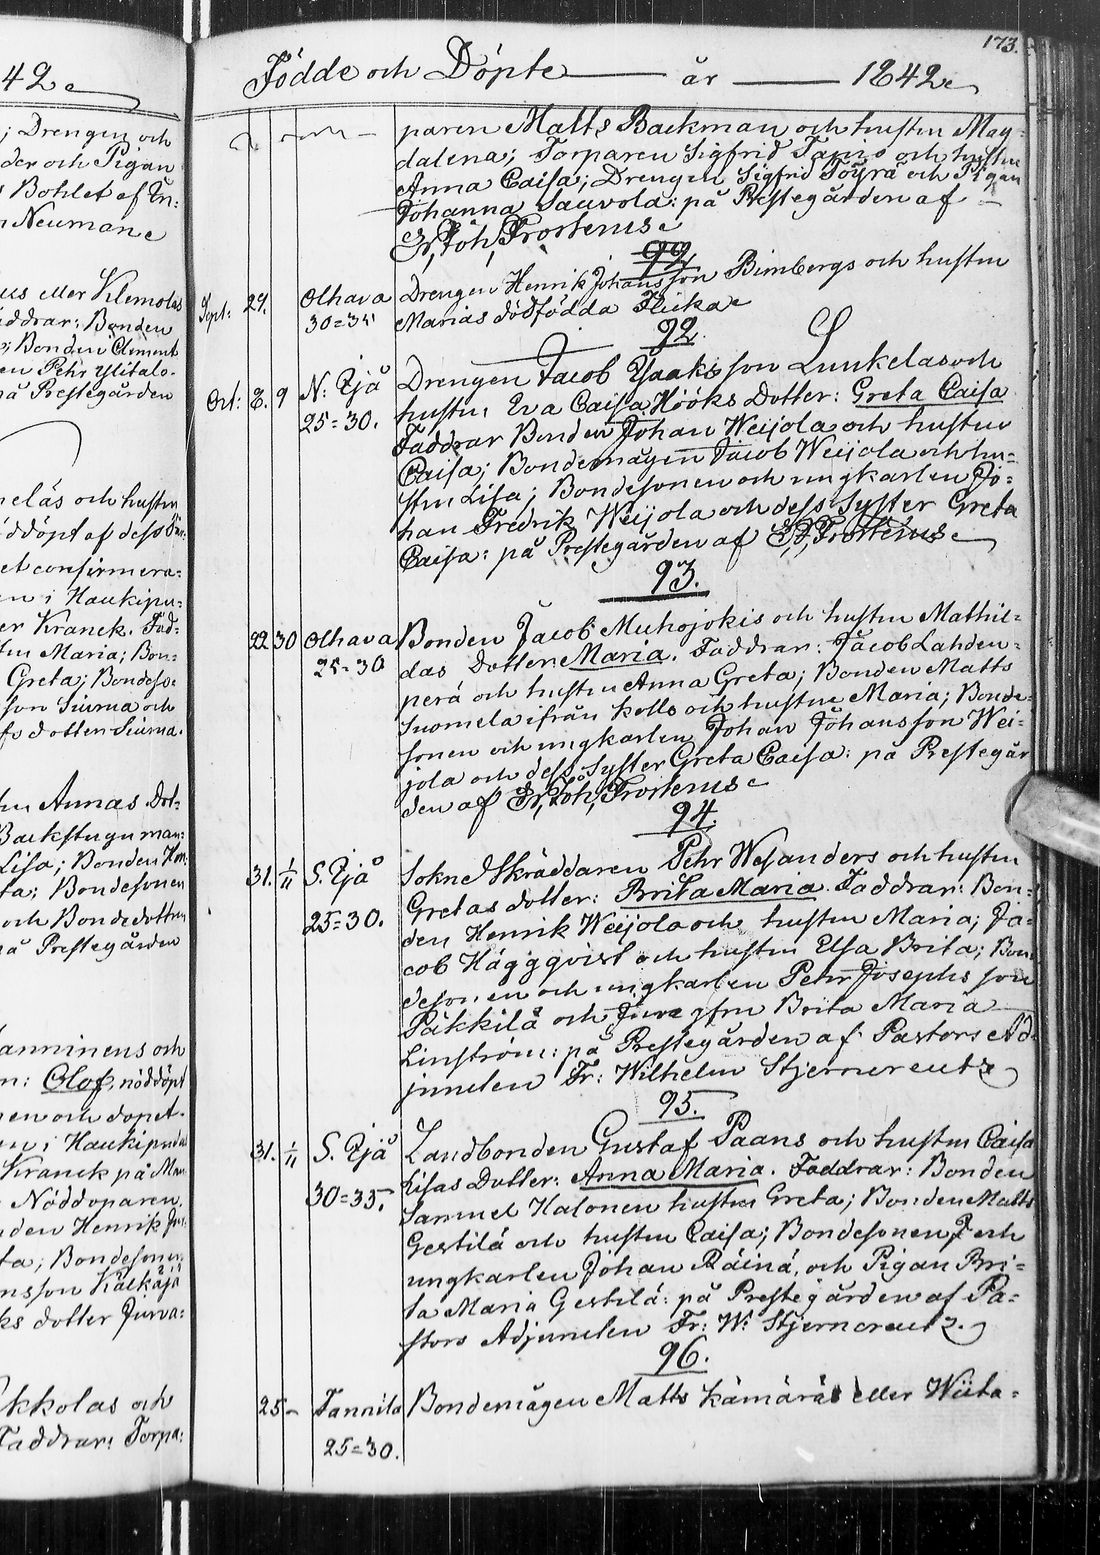 42
; Drengen och
der och Pigan
s Bohlet af En:
n Neuman
us eller Klemolas
addrar: Bonden
; Bonden Clement
en Pehr Ylitalo
på Prestegården
neläs och hustru
öddöpt af dess
et confirmera:
en i Haukipu:
er Kranck. Fad:
fru Maria; Bon:
Greta; Bondeso:
son Siurua och
dotter Siurua.
ru Annas Dot:
Backstuguman:
Lisa; Bonden Hen:
ta; Bondesonen
och Bondedottren
på Prestegården
anninens och
n: Olof, nöddöpt
en och döpet
en i Haukipudas
Kranck på
Nöddöparen
den Henrik
ta; Bondesonen
nsson Kälkäjä
ks dotter Jurva:
kkolas och
Faddrar: Torpa:
173.
Födde och Döpte år 1842
paren Matts Backman och hustru Mag=
dalena; Torparen Sigfrid Tapio och hustru
Anna Caisa; Drengen Sigfrid Töyrä och Pigan
Johanna Sauvola: på Prestegården af
Joh, Frosterus
92
Sept: 29. Olhava Drengen Henrik Johansson Bimbergs och hustru
30=35 Marias dödfödda Flicka
92.
Oct: 8. 9 N: Ijå Drengen Jacob Isaksson Lunkelas och
25=30. hustru Eva Caisa Hööks Dotter: Greta Caisa
Faddrar Bonden Johan Weijola och hustru
Caisa; Bondemågen Jacob Weijola och hu=
stru Lisa; Bondesonen och ungkarlen Jo=
han Fredrik Weijola och dess Syster Greta
Caisa: på Prestegården af Frosterus
93.
22 30 Olhava Bonden Jacob Muhojokis och hustru Mathil=
25=30 das Dotter Maria. Faddrar: Jacob Lahden=
perä och hustru Anna Greta; Bonden Matts
Suomela ifrån Kollo och hustru Maria; Bonde=
sonen och ungkarlen Johan Johansson Wei=
jola och dess Syster Greta Caisa: på Prestegår
den af Joh, Frosterus
94.
31. 1/11 S. Ijå Sokne Skräddaren Pehr Wesanders och hustru
25=30. Gretas dotter: Brita Maria. Faddrar: Bon=
den Henrik Weijola och hustru Maria; Ja=
cob Häggqvist och hustru Elsa Brita; Bon
desonen och ungkarlen Pehr Josephsson
Päkkilä och Jungfru Brita Maria
Linström: på Prestegården af Pastors Ad=
juncten Fr: Wilhelm Stjerncreutz
95.
31. 1/11 S. Ijå Landbonden Gustaf Paans och hustru Caisa
30=35. Lisas Dotter: Anna Maria. Faddrar: Bonden
Samuel Halonen hustru Greta; Bonden Matts
Gestilä och hustru Caisa; Bondesonen J och
ungkarlen Johan Räinä, och Pigan Bri=
ta Maria Gestilä: på Prestegården af Pa=
stors Adjuncten Fr: W: Stjerncreutz.
96.
25 Tannila Bondemågen Matts Kämäräs eller Wiita=
25=30.